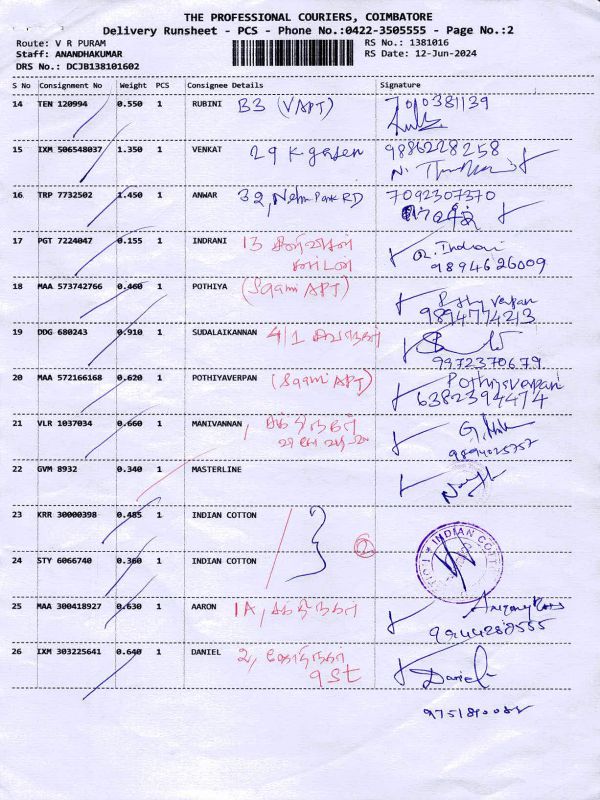 THE PROFESSIONAL COURIERS, COIMBATORE
Delivery Runsheet - PCS - Phone No.:0422-3505555 - Page No.:2
Route: V R PURAM
RS No.: 1381016
Staff: ANANDHAKUMAR
RS Date: 12-Jun-2024
DRS No.: DCJB138101602
S No Consignment No Weight PCS Consignee Details Signature
14 TEN 120994 0.550 1 RUBINI B3 (VAPT)
15 IXM 506548037 1.350 1 VENKAT 29 K garden 9886228258
16 TRP 7732502 1.450 1 ANWAR 32, Nehru Park RD 7092307370
17 PGT 7224047 0.155 1 INDRANI 13
R. Indrani
9894626009
18 MAA 573742766 0.460 1 POTHIYA (Saami APT) Pothyverpan
9894774213
19 DDG 680243 0.910 1 SUDALAIKANNAN 4/1
9972370679
20 MAA 572166168 0.620 1 POTHIYAVERPAN (Saami APT) Pothiyverpan
6382394474
21 VLR 1037034 0.660 1 MANIVANNAN
9894025757
22 GVM 8932 0.340 1 MASTERLINE
23 KRR 30000398 0.485 1 INDIAN COTTON
2
INDIAN
24 STY 6066740 0.360 1 INDIAN COTTON
25 MAA 300418927 0.630 1 AARON 1A,
9944288555
26 IXM 303225641 0.640 1 DANIEL 2, Daniel
9 St